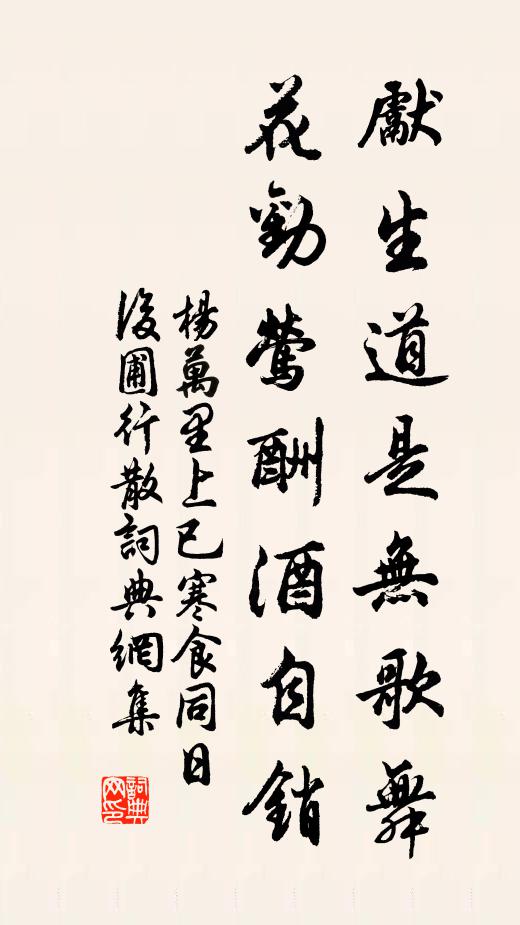 獻生道是無歌舞
花勸鶯酬酒自銷
楊萬里上巳寒食同日
後圃行散詞典網集
詞典网印